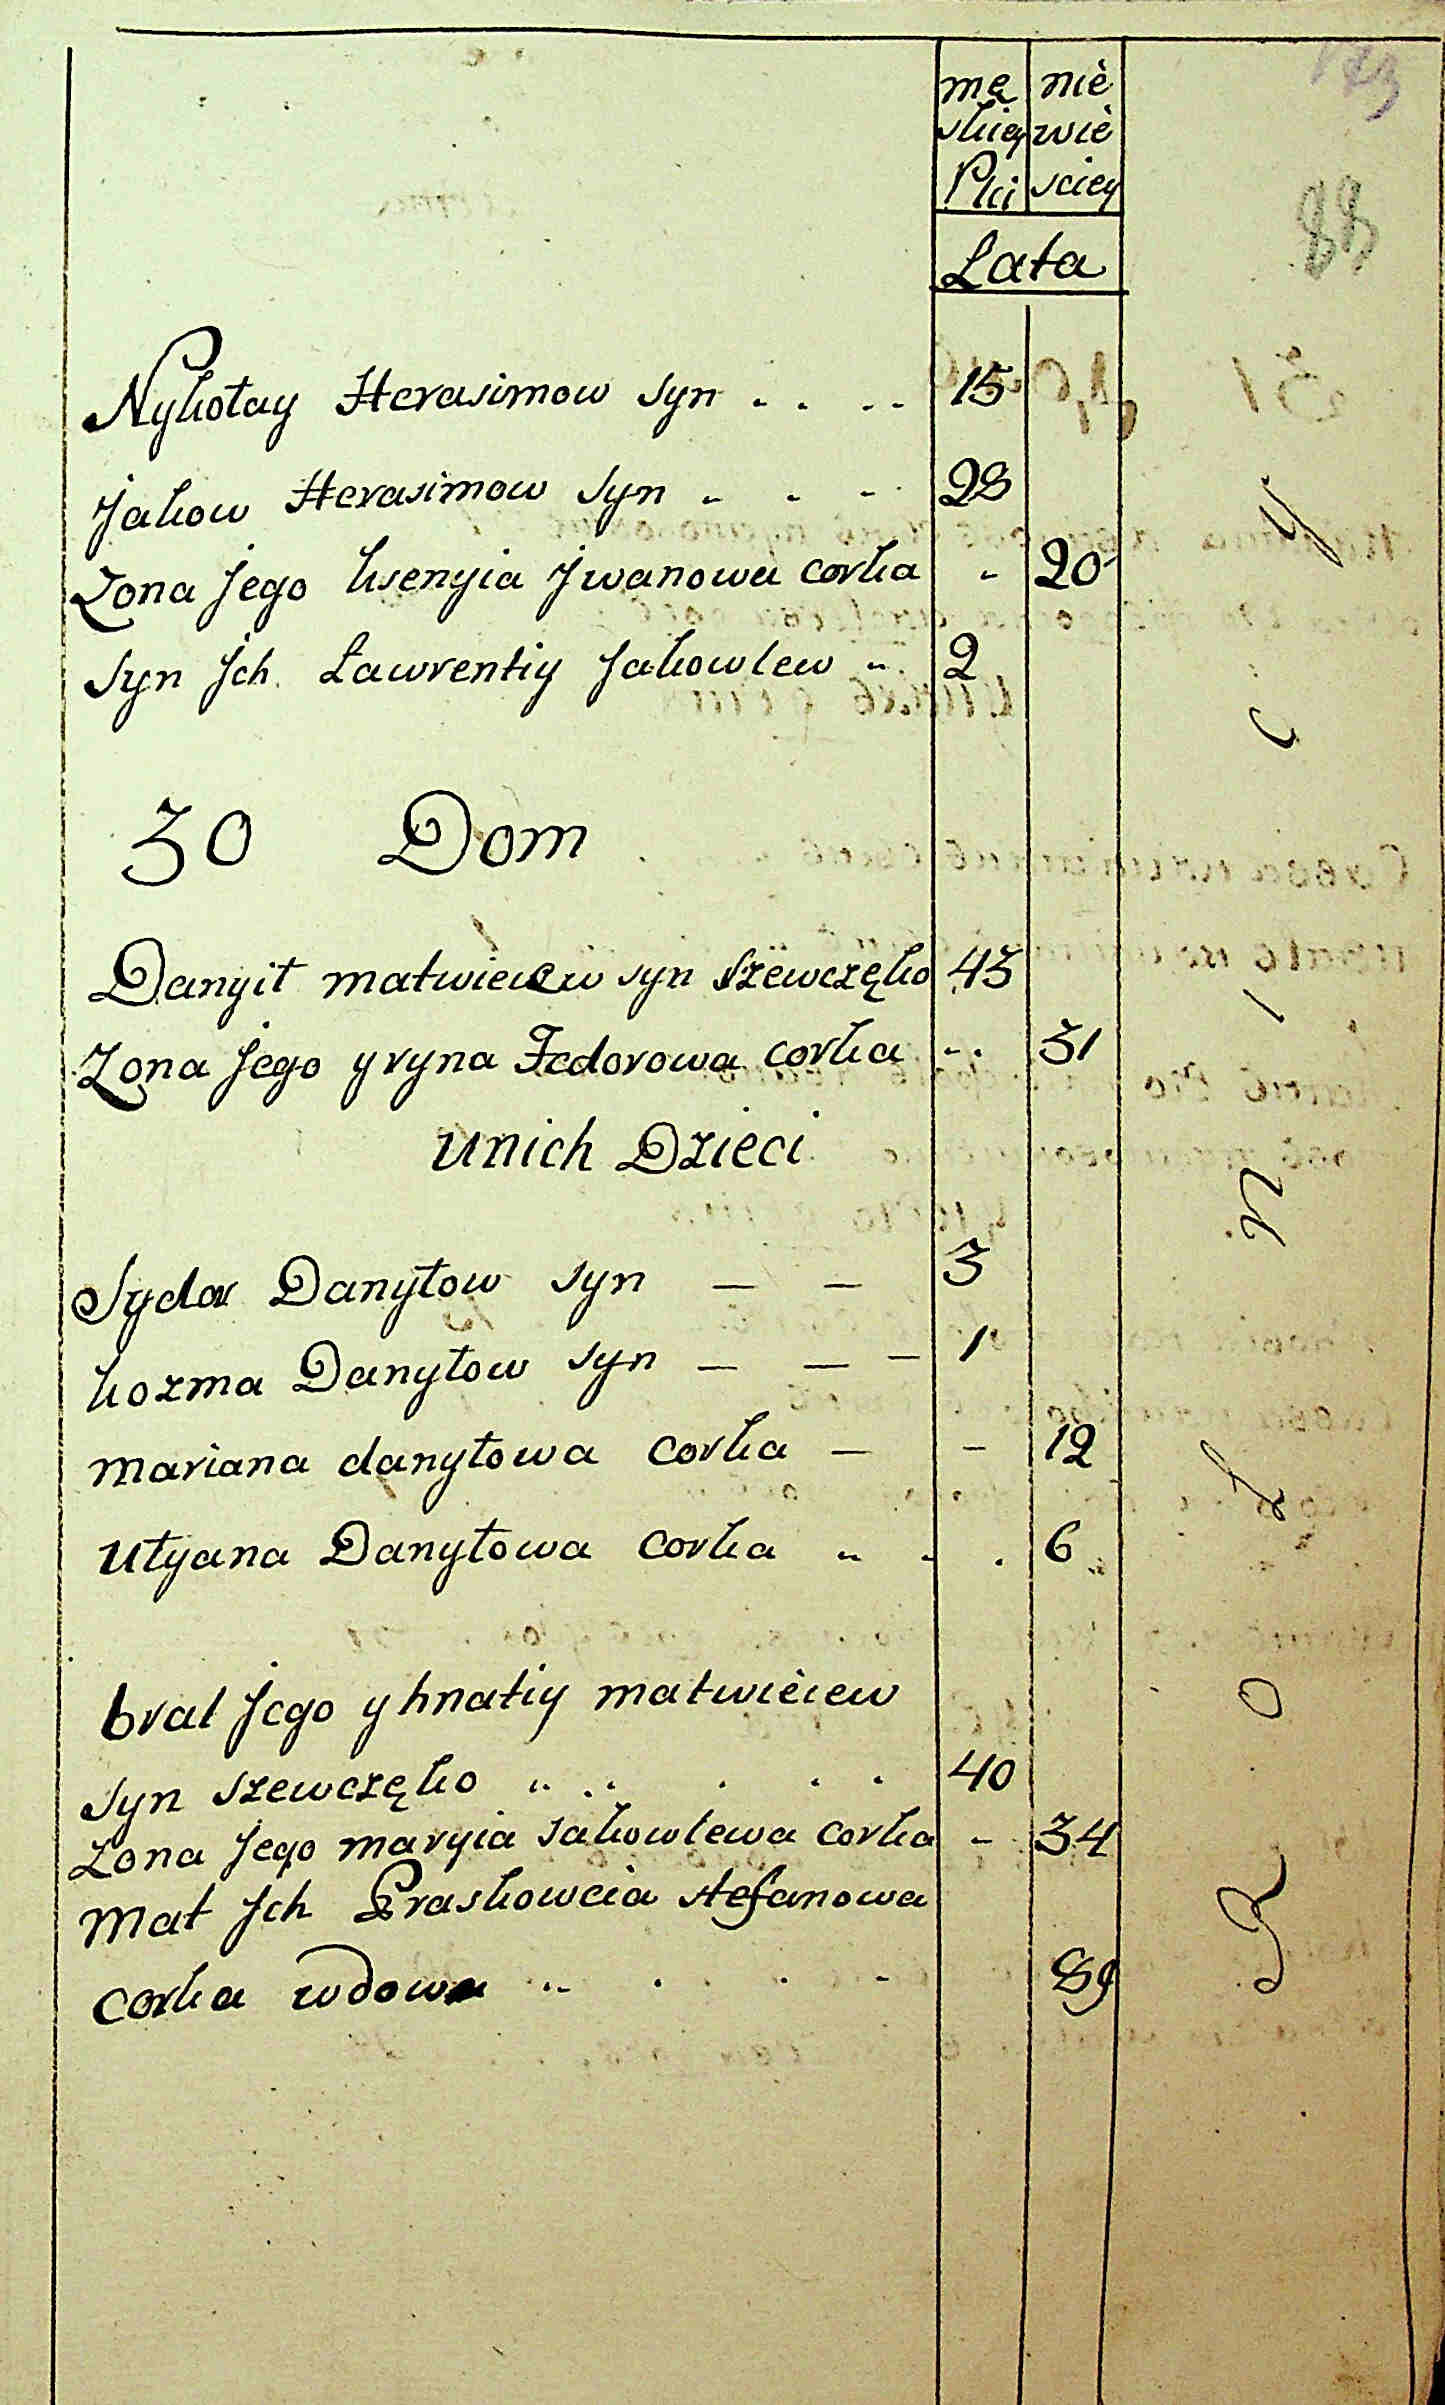 mę niè
skiey wiè
Płci sciey
Lata
88
Nykołay Herasimow syn . . . . 15
Jakow Herasimow Syn 28
Zona Jego ksenyia Jwanowa corka 20
Syn Jch Ławrentiy Jakowlew 2
30 Dom
Danyił matwieiew syn Szewczęko 43
Zona Jego yryna Fedorowa corka 31
unich Dzieci
Sydor Danyłow syn — — 3
kozma Danyłow syn — — — 1
mariana danyłowa corka — - 12
Ulyana Danyłowa corka 6
brat Jego yhnatiy matwièiew
syn szewczęko 40
Zona Jego maryia Jakowlewa corka 34
mat Jch Praskoweia stefanowa
corka wdowa 89